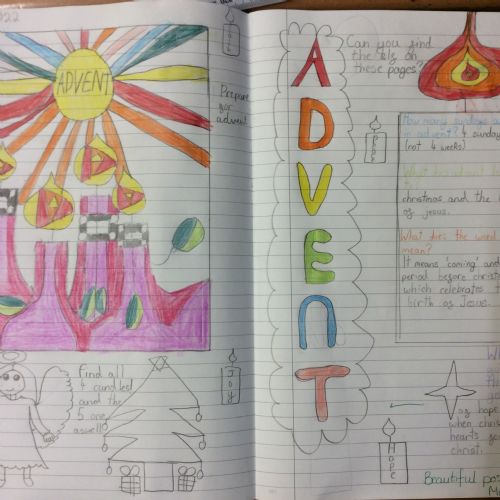 2022
ADVENT
Prepare
for
advent
Find all
4 candles
and the
5 one
aswell
Joy
ADVENT
Can you find
the
on
these pages?
Peace
How many sundays a
in advent? 4 sunday
(not 4 weeks)
What
christmas and the
of jesus.
What does the word
mean?
It means 'coming' and
period before christ
which celebrates t
birth of Jesus.
of hope
when chris
hearts
christ.
Hope
Beautiful